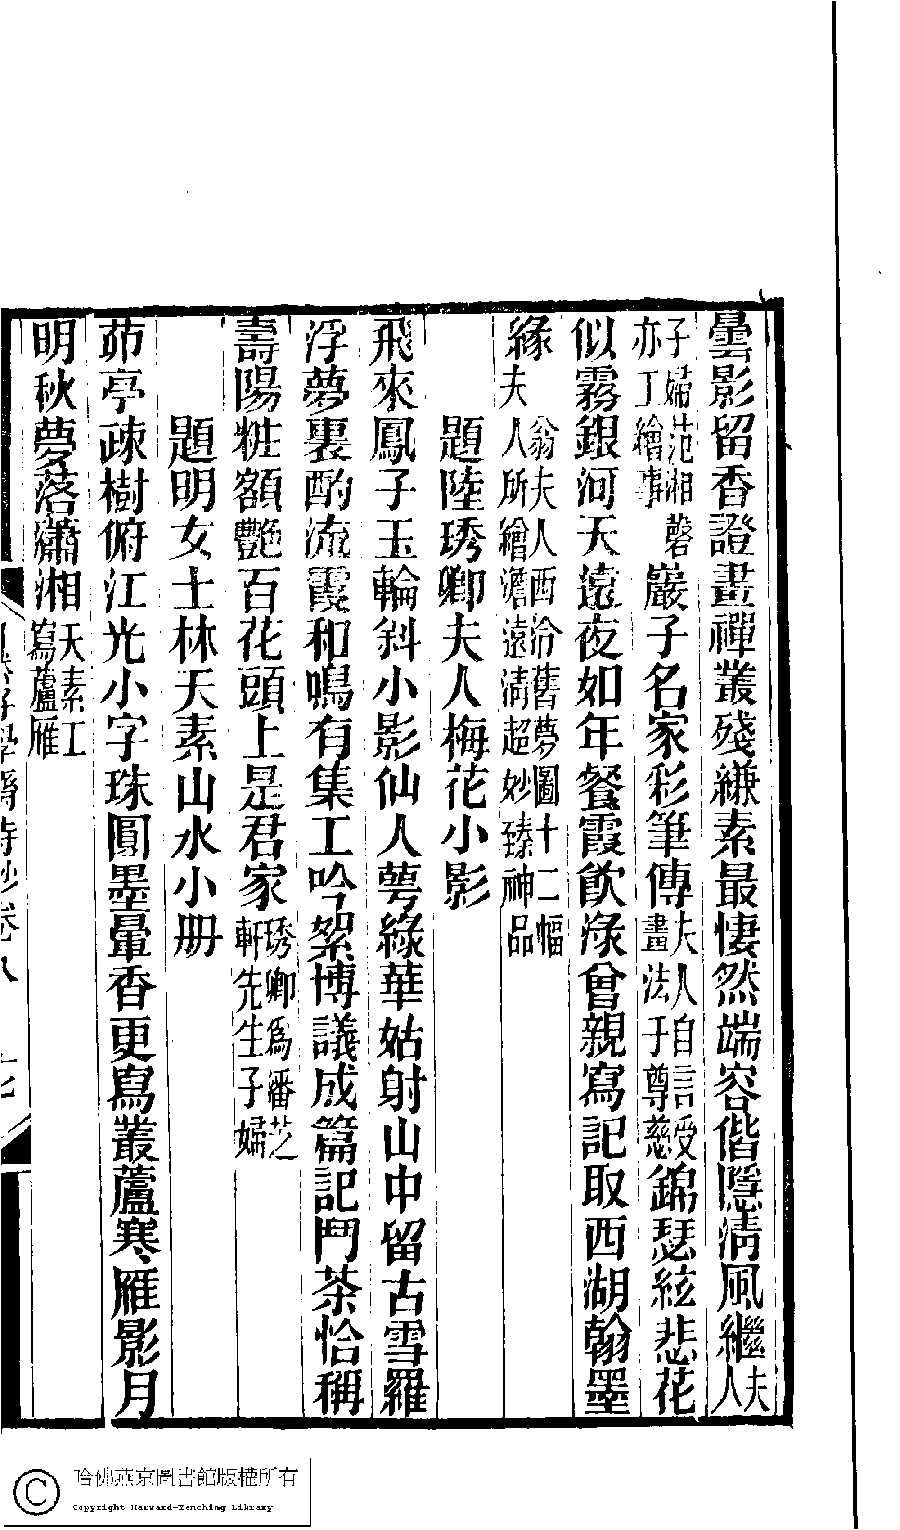 曇影留香證畫禪叢殘縑素最悽然端容偕隱淸風繼夫人
子婦范湘磬亦工繪事巖子名家彩筆傳夫人自言受畫法于尊慈錦瑟絃悲花
似霧銀河天遠夜如年餐霞飮淥曾親寫記取西湖翰墨
緣翁夫人西泠舊夢圖十二幅夫人所繪澹遠淸超妙臻神品
題陸琇卿夫人梅花小影
飛來鳳子玉輪斜小影仙人萼綠華姑射山中留古雪羅
浮夢裏酌流霞和鳴有集工吟絮博議成篇記鬥茶恰稱
壽陽粧額艷百花頭上是君家琇卿爲潘芝軒先生子婦
題明女士林天素山水小册
茆亭疎樹俯江光小字珠圓墨暈香更寫叢蘆寒雁影月
明秋夢落瀟湘天素工寫蘆雁
好學齋詩鈔卷八
哈佛燕京圖書館版權所有
Copyright Harvard-Yenching Library